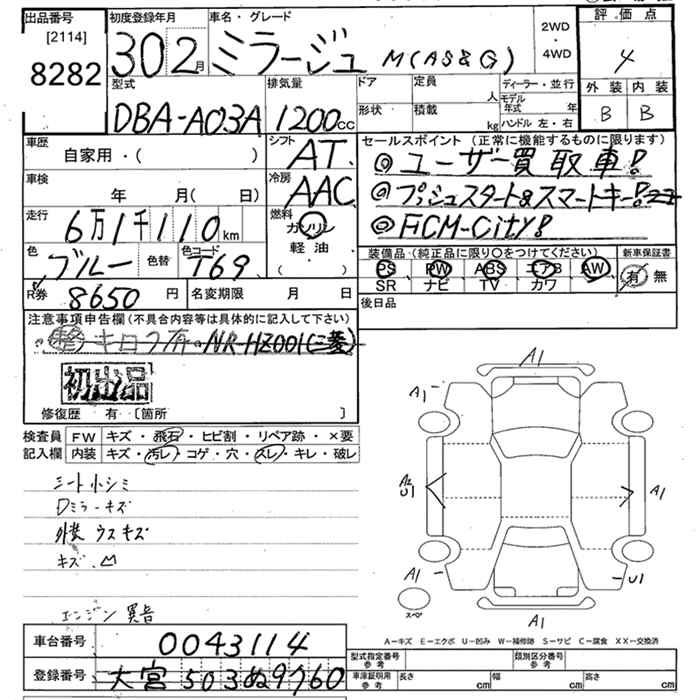 出品番号
[2114]
8282
初度登録年月
30 2月
車名・グレード
ミラージュ M(AS&G)
2WD
・
4WD
評価点
4
外装 内装
B B
型式
DBA-A03A
排気量
1200cc
ドア
形状
定員 人
積載 kg
ディーラー・並行
モデル年式 年
ハンドル 左・右
車歴
自家用・( )
シフト
AT
セールスポイント(正常に機能するものに限ります)
◎ユーザー買取車!
◎プッシュスタート&スマートキー!
◎FCM-City!
車検
年 月( 日)
冷房
AAC
走行
6万1千110km
燃料
ガソリン
軽油
( )
色
ブルー
色替
色コード
T69
装備品(純正品に限り○をつけてください)
PS PW ABS エアB AW
SR ナビ TV カワ
新車保証書
有 無
R券
8650円
名変期限 月 日
後日品
注意事項申告欄(不具合内容等は具体的に記入して下さい)
キロフ有 NR-HZ001(三菱)
初出品
修復歴 有 〔箇所 〕
検査員
記入欄
FW キズ・飛石・ヒビ割・リペア跡・×要
内装 キズ・汚レ・コゲ・穴・スレ・キレ・破レ
シート小シミ
Dミラーキズ
外装 ウスキズ
キズ.凹
エンジン 異音
A1
A1
A2
U1
A1
A1
U1
スペア
A1
A-キズ E-エクボ U-凹み W-補修跡 S-サビ C-腐食 XX-交換済
車台番号
0043114
登録番号
大宮 503 ぬ9760
型式指定番号
参考
類別区分番号
参考
車庫証明用
参考
長さ cm
幅 cm
高さ cm